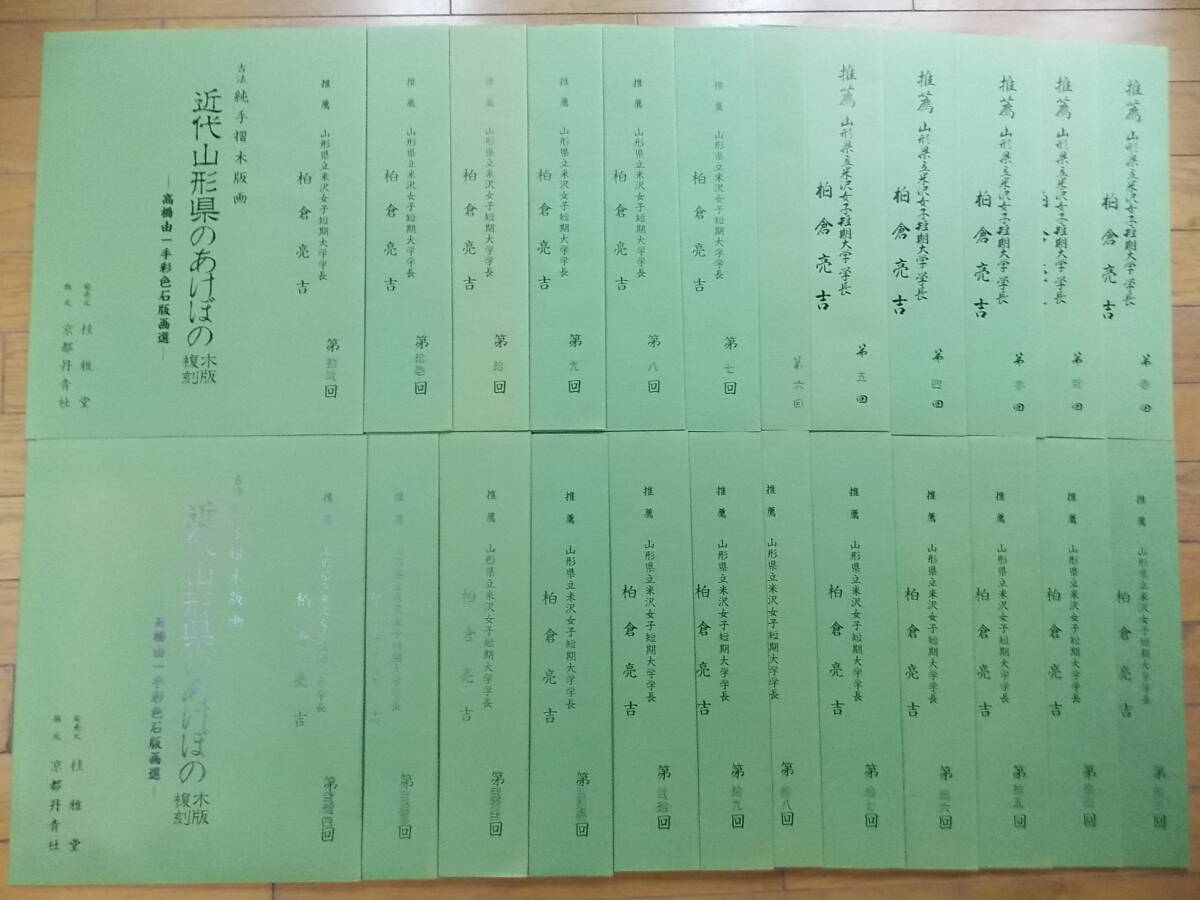 推薦 山形県立米沢女子短期大学学長
柏倉亮吉
第壱回
推薦 山形県立米沢女子短期大学学長
柏
第弐回
推薦 山形県立米沢女子短期大学学長
柏倉亮吉
第参回
推薦 山形県立米沢女子短期大学学長
柏倉亮吉
第四回
推薦 山形県立米沢女子短期大学学長
柏倉亮吉
第五回
第六回
推薦 山形県立米沢女子短期大学学長
柏倉亮吉
第七回
推薦 山形県立米沢女子短期大学学長
柏倉亮吉
第八回
推薦 山形県立米沢女子短期大学学長
柏倉亮吉
第九回
推薦 山形県立米沢女子短期大学学長
柏倉亮吉
第拾回
推薦 山形県立米沢女子短期大学学長
柏倉亮吉
第拾壱回
推薦 山形県立米沢女子短期大学学長
柏倉亮吉
第拾弐回
古法 純手摺木版画
近代山形県のあけぼの 木版複刻
―高橋由一手彩色石版画選―
発売元 桂雅堂
版元 京都丹青社
推薦 山形県立米沢女子短期大学学長
柏倉亮吉
第拾三回
推薦 山形県立米沢女子短期大学学長
柏倉亮吉
第拾四回
推薦 山形県立米沢女子短期大学学長
柏倉亮吉
第拾五回
推薦 山形県立米沢女子短期大学学長
柏倉亮吉
第拾六回
推薦 山形県立米沢女子短期大学学長
柏倉亮吉
第拾七回
推薦 山形県立米沢女子短期大学学長
第拾八回
推薦 山形県立米沢女子短期大学学長
柏倉亮吉
第拾九回
推薦 山形県立米沢女子短期大学学長
柏倉亮吉
第弐拾回
推薦 山形県立米沢女子短期大学学長
柏倉亮吉
第弐拾壱回
推薦 山形県立米沢女子短期大学学長
柏倉亮吉
第弐拾弐回
推薦
女子短期大学学長
第弐拾参回
推薦
柏倉亮吉
第弐拾四回
古法 純手摺木版画
近代山形県のあけぼの 木版複刻
高橋由一手彩色石版画選―
発売元 桂雅堂
版元 京都丹青社